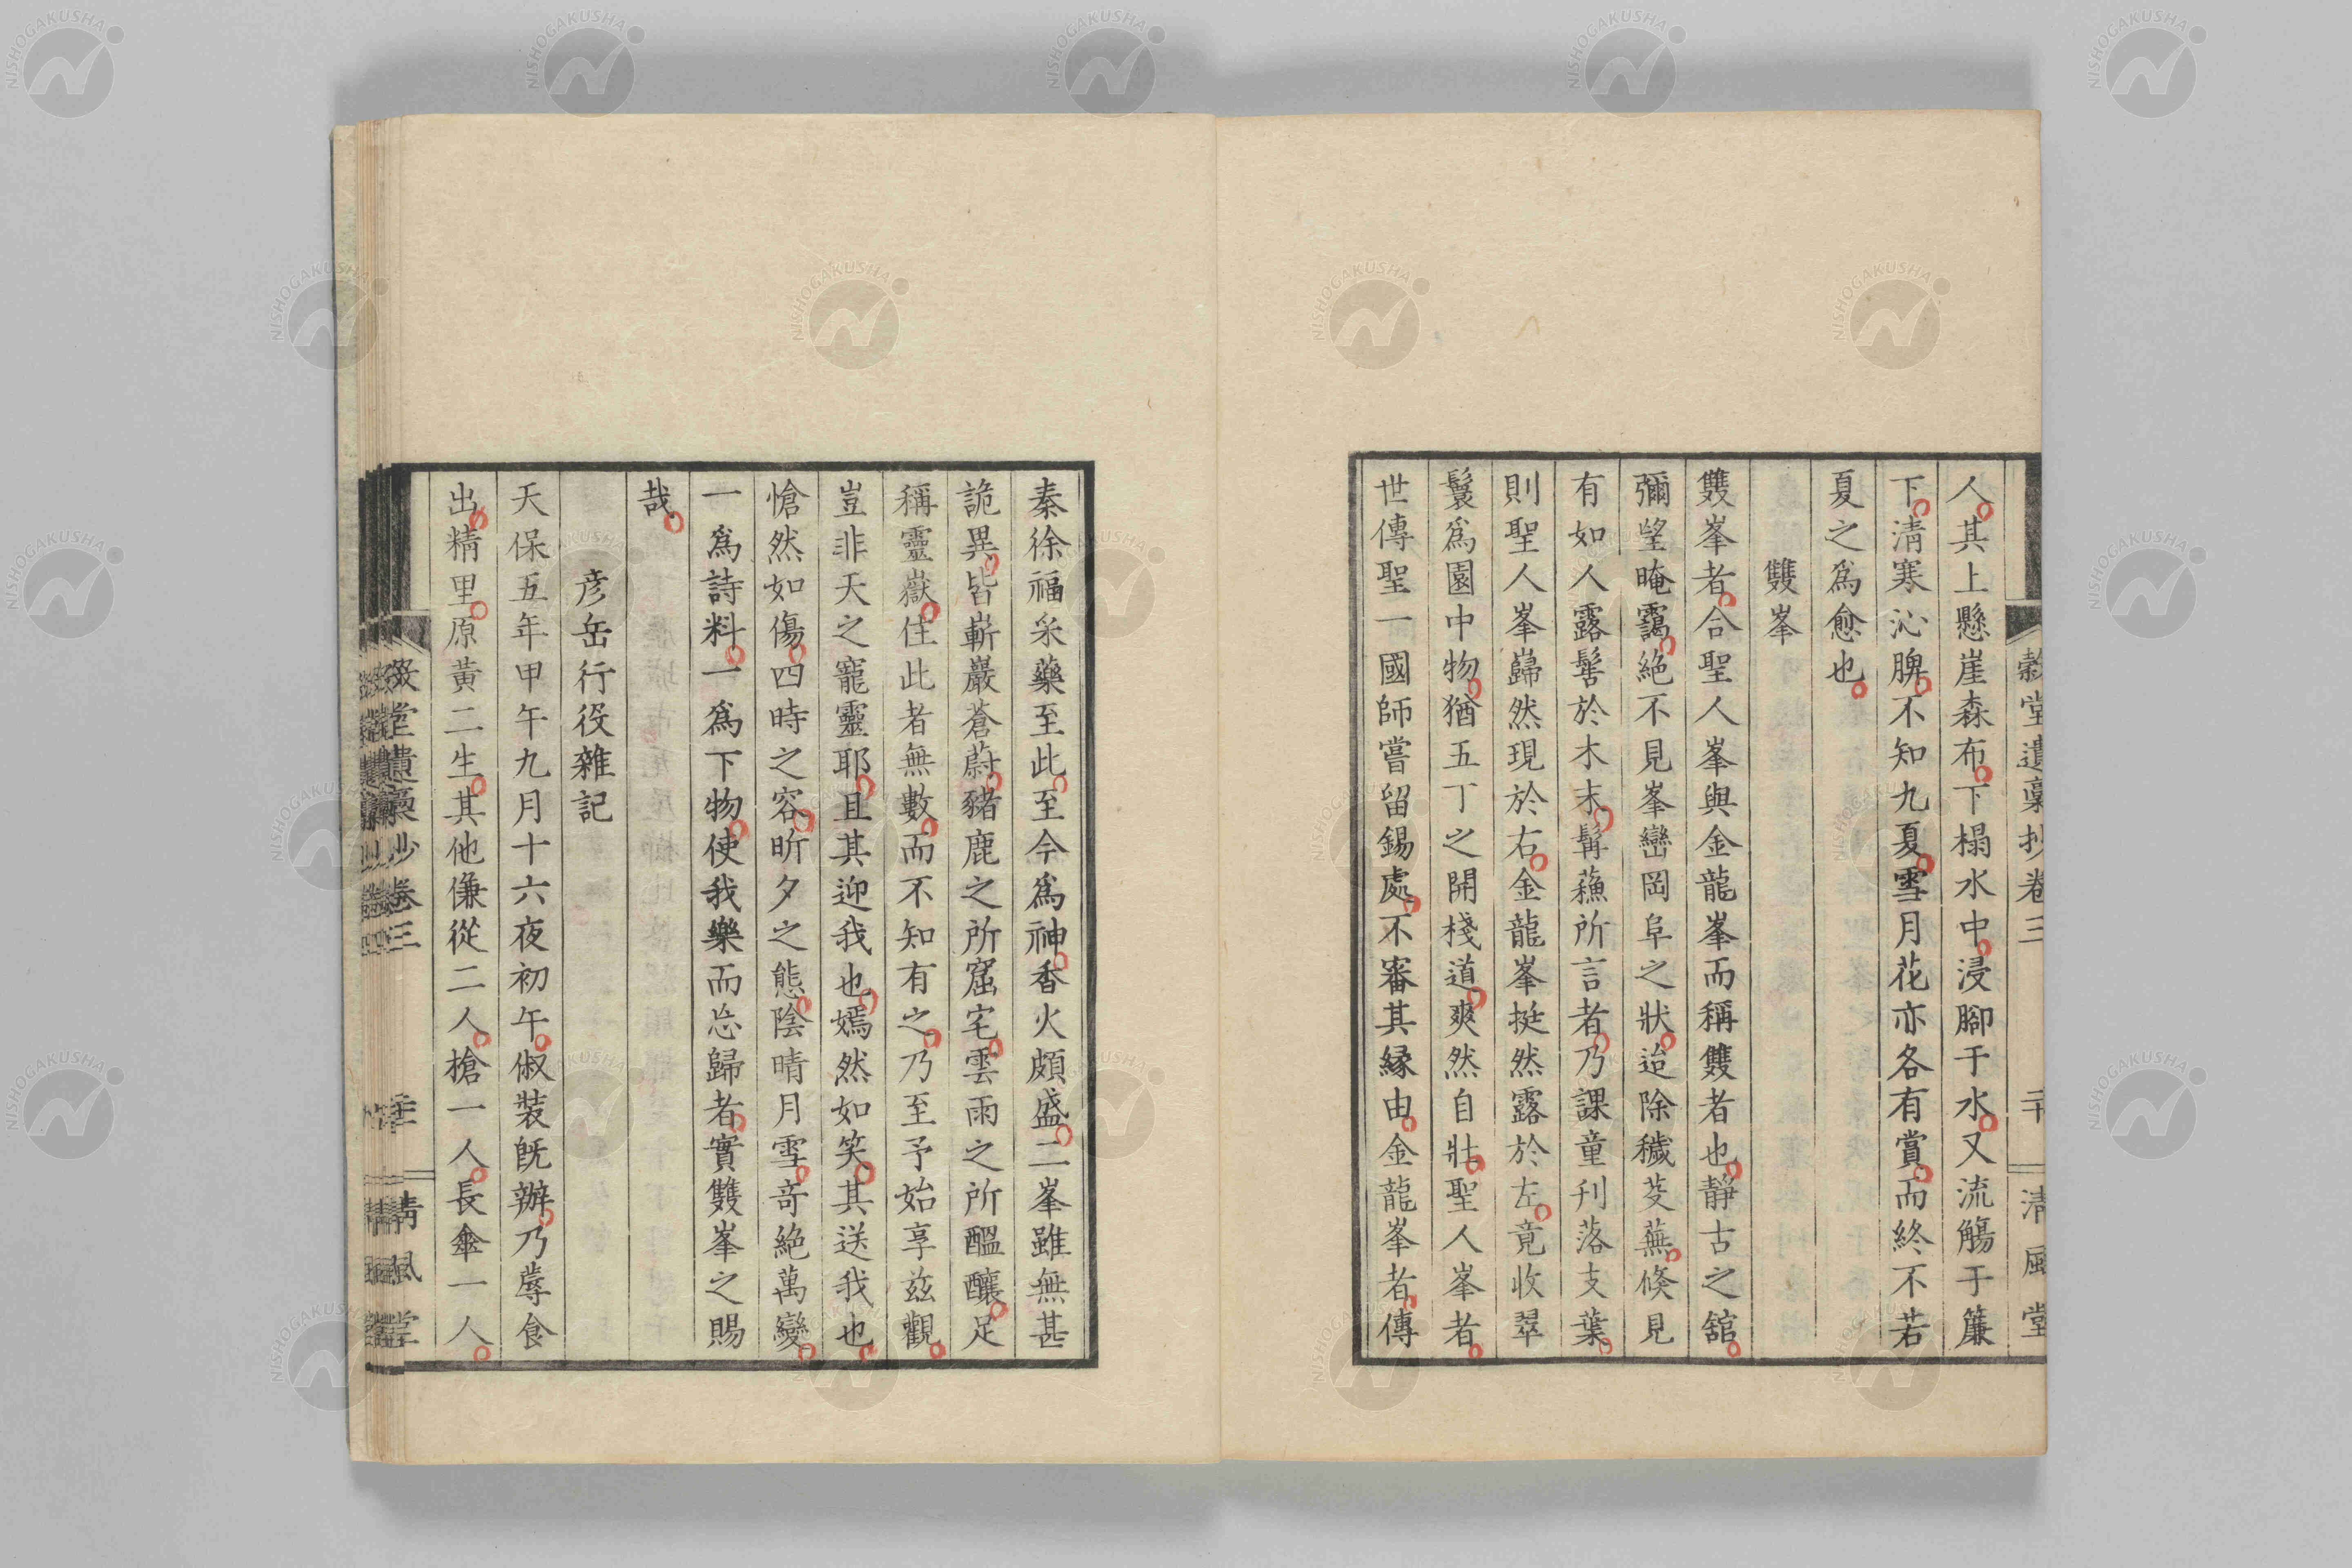 穀堂遺稾抄卷三 二十 淸風堂
人其上懸崖森布下榻水中浸腳于水又流觴于簾
下淸寒沁脾不知九夏雪月花亦各有賞而終不若
夏之爲愈也
雙峯
雙峯者合聖人峯與金龍峯而稱雙者也靜古之舘
彌望晻靄絕不見峯巒岡阜之狀迨除穢芟蕪倐見
有如人露髻於木末髯蘓所言者乃課童刋落支葉
則聖人峯巋然現於右金龍峯挺然露於左竟收翠
鬟爲園中物猶五丁之開棧道爽然自壯聖人峯者
世傳聖一國師嘗留錫處不審其緣由金龍峯者傳
秦徐福采藥至此至今爲神香火頗盛二峯雖無甚
詭異皆嶄巖蒼蔚豬鹿之所窟宅雲雨之所醞釀足
稱靈嶽住此者無數而不知有之乃至予始享茲觀
豈非天之寵靈耶且其迎我也嫣然如笑其送我也
愴然如傷四時之容昕夕之態陰晴月雪奇絕萬變
一爲詩料一爲下物使我樂而忘歸者實雙峯之賜
哉
彦岳行役雜記
天保五年甲午九月十六夜初午俶装旣辦乃蓐食
出精里原黃二生其他傔從二人槍一人長傘一人
穀堂遺稾抄卷三 淸風堂
NISHOGAKUSHA